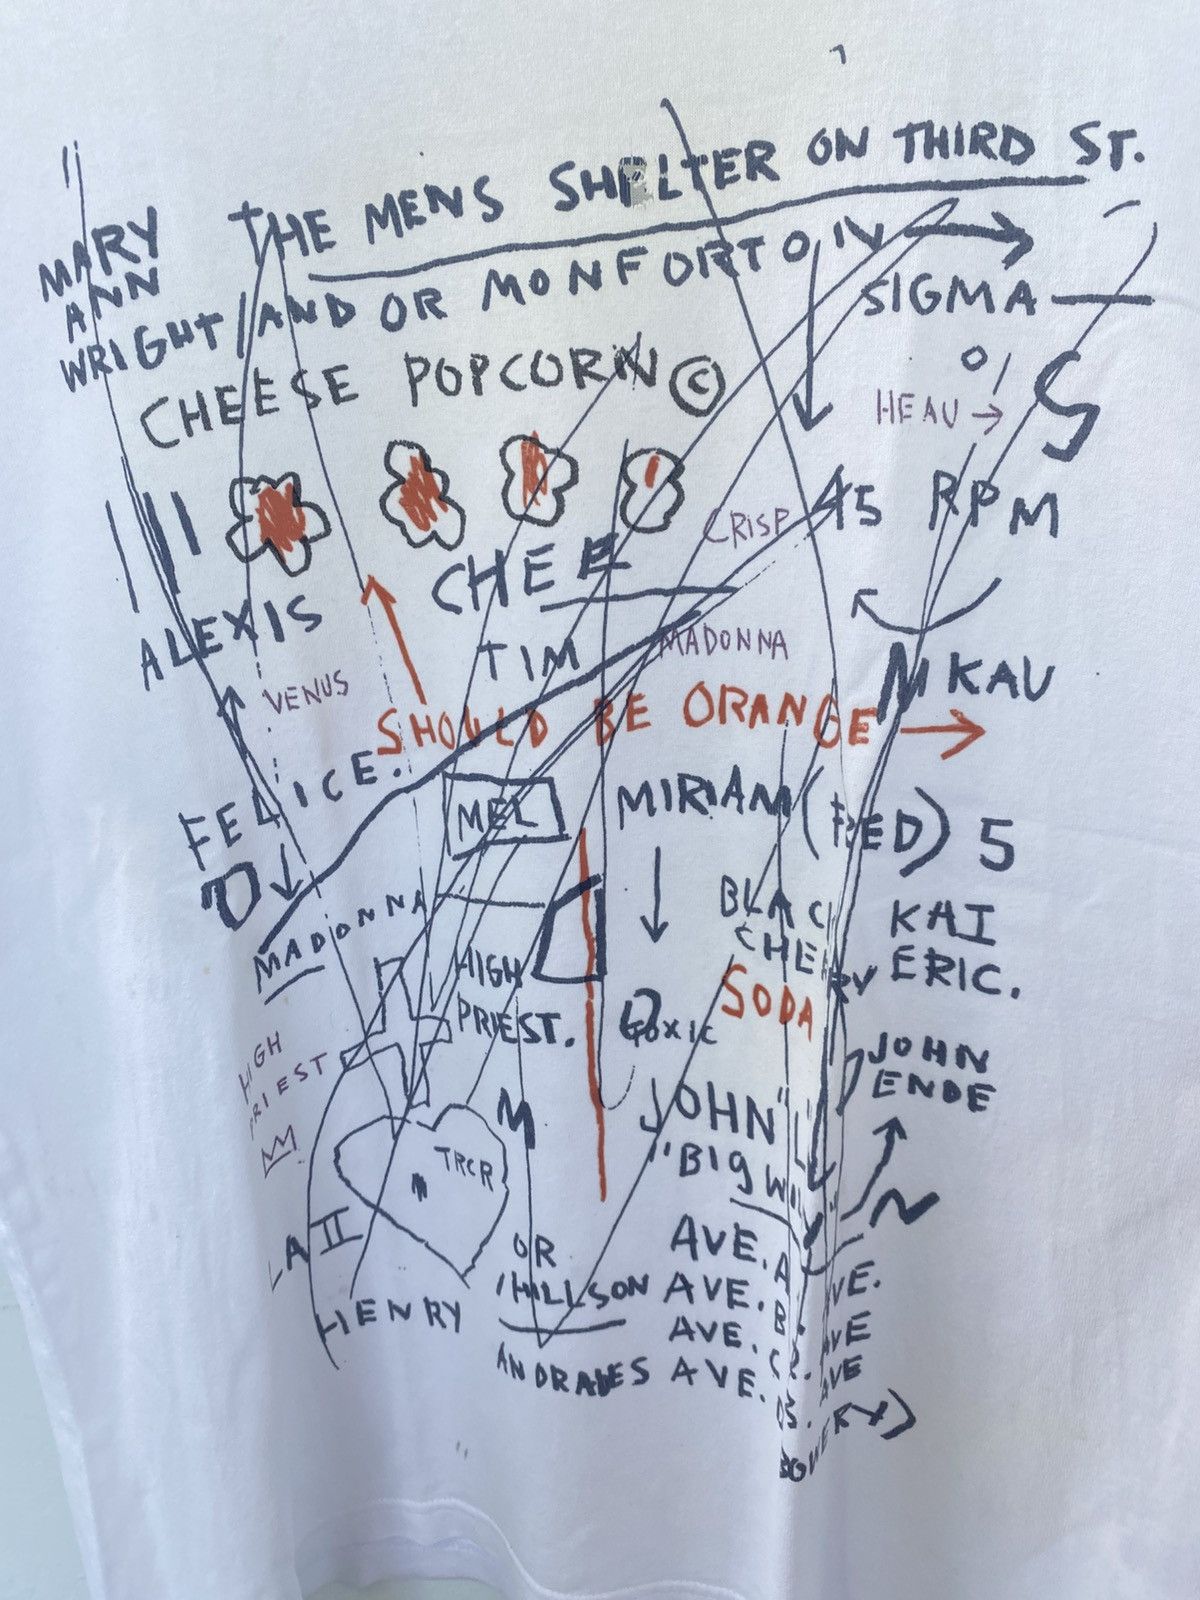 THE MENS SHELTER ON THIRD ST.
MARY
ANN
WRIGHT/AND OR MONFORTON
SIGMA
CHEESE POPCORN ©
HEAU →
S
45 RPM
CRISP
CHEE
ALEXIS
TIM
MADONNA
NKAU
VENUS
SHOULD BE ORANGE
FELICE.
MEL
MIRIAM (RED) 5
MADONNA
BLACK
CHERRY
SODA
KAI
ERIC.
HIGH
PRIEST.
TOXIC
HIGH
PRIEST
JOHN
ENDE
M
JOHN "L"
"BIG
TRCR
N
LA II
HENRY
OR
HILLSON
ANDRADES
AVE. A
AVE. B.
AVE. C.
AVE. D.
AVE.
AVE
AVE
BOWERY)